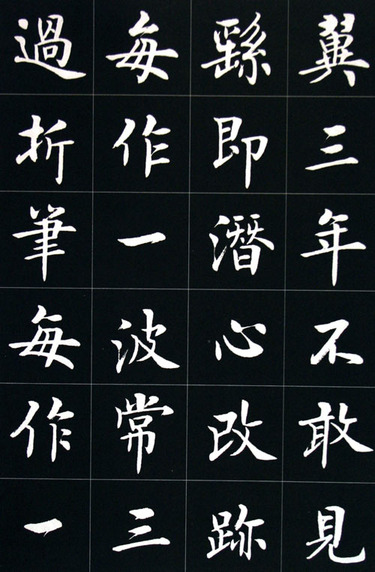 翼三年不敢見
繇即潛心改跡
每作一波常三
過折筆每作一